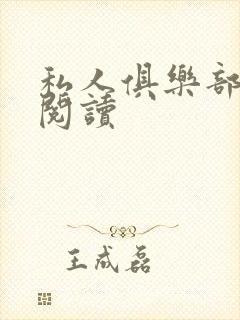 私人俱樂部
閱讀
王成磊